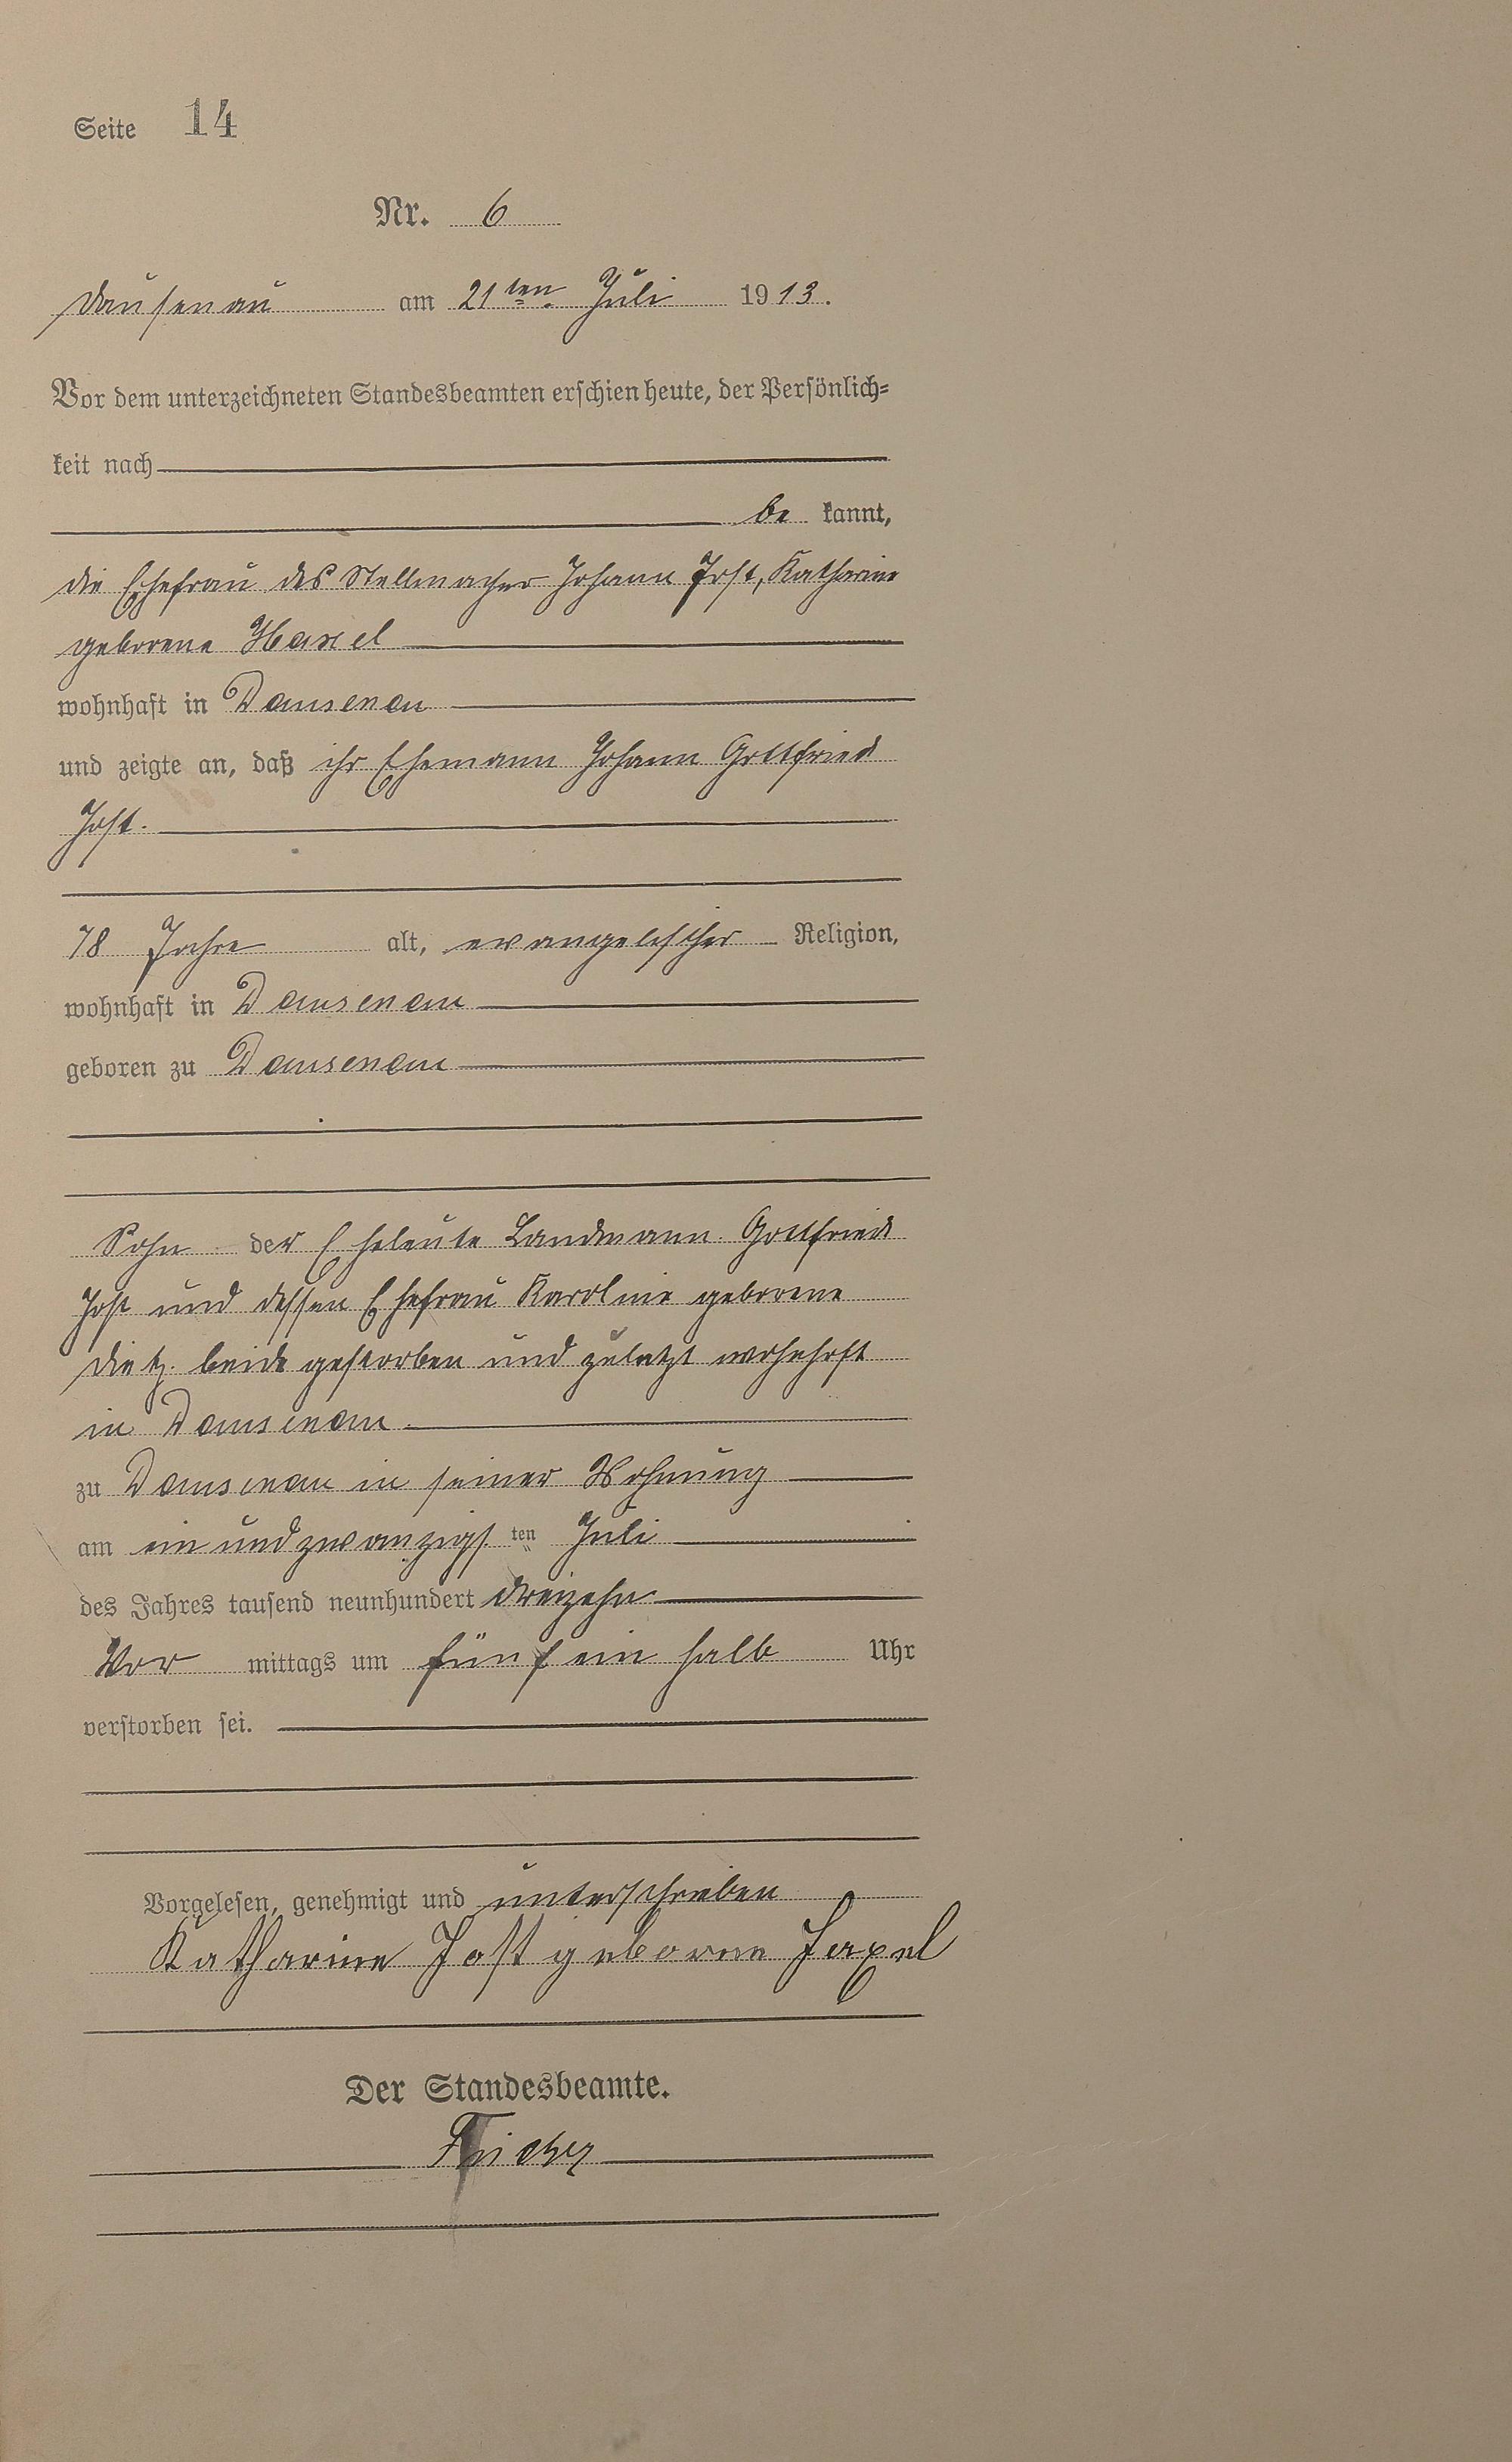 Seite 14
Nr. 6
Dausenau am 21ten Juli 1913.
Vor dem unterzeichneten Standesbeamten erschien heute, der Persönlich-
keit nach
be kannt,
die Ehefrau des Stellmacher Johann Jost, Katharine
geborene Haxel
wohnhaft in Dausenau
und zeigte an, daß ihr Ehemann Johann Gottfried
Jost.
78 Jahre alt, evangelischer Religion,
wohnhaft in Dausenau
geboren zu Dausenau
Sohn der Eheleute Landmann Gottfried
Jost und dessen Ehefrau Karoline geborene
Dietz. beide gestorben und zuletzt wohnhaft
in Dausenau.
zu Dausenau in seiner Wohnung
am ein und zwanzigsten Juli
des Jahres tausend neunhundert dreizehn
Vor mittags um fünf ein halb Uhr
verstorben sei.
Vorgelesen, genehmigt und unterschrieben
Katharine Jost geborne Haxel
Der Standesbeamte.